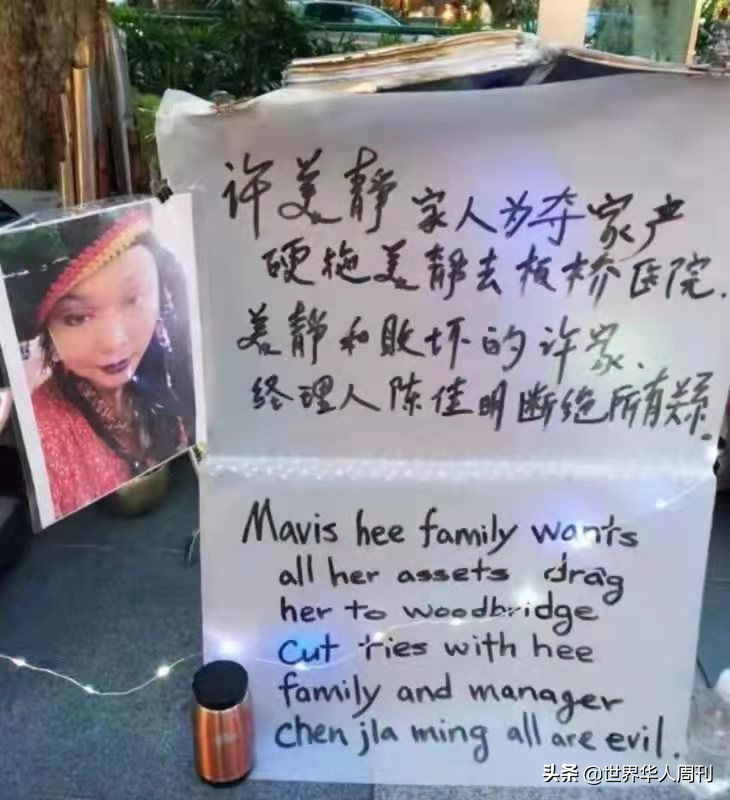 许美静 家人为夺家产
硬拖美静去板桥医院.
美静和败坏的许家.
经理人陈佳明断绝所有关系.
Mavis hee family wants
all her assets drag
her to woodbridge
cut ties with hee
family and manager
chen jla ming all are evil.
头条 @世界华人周刊